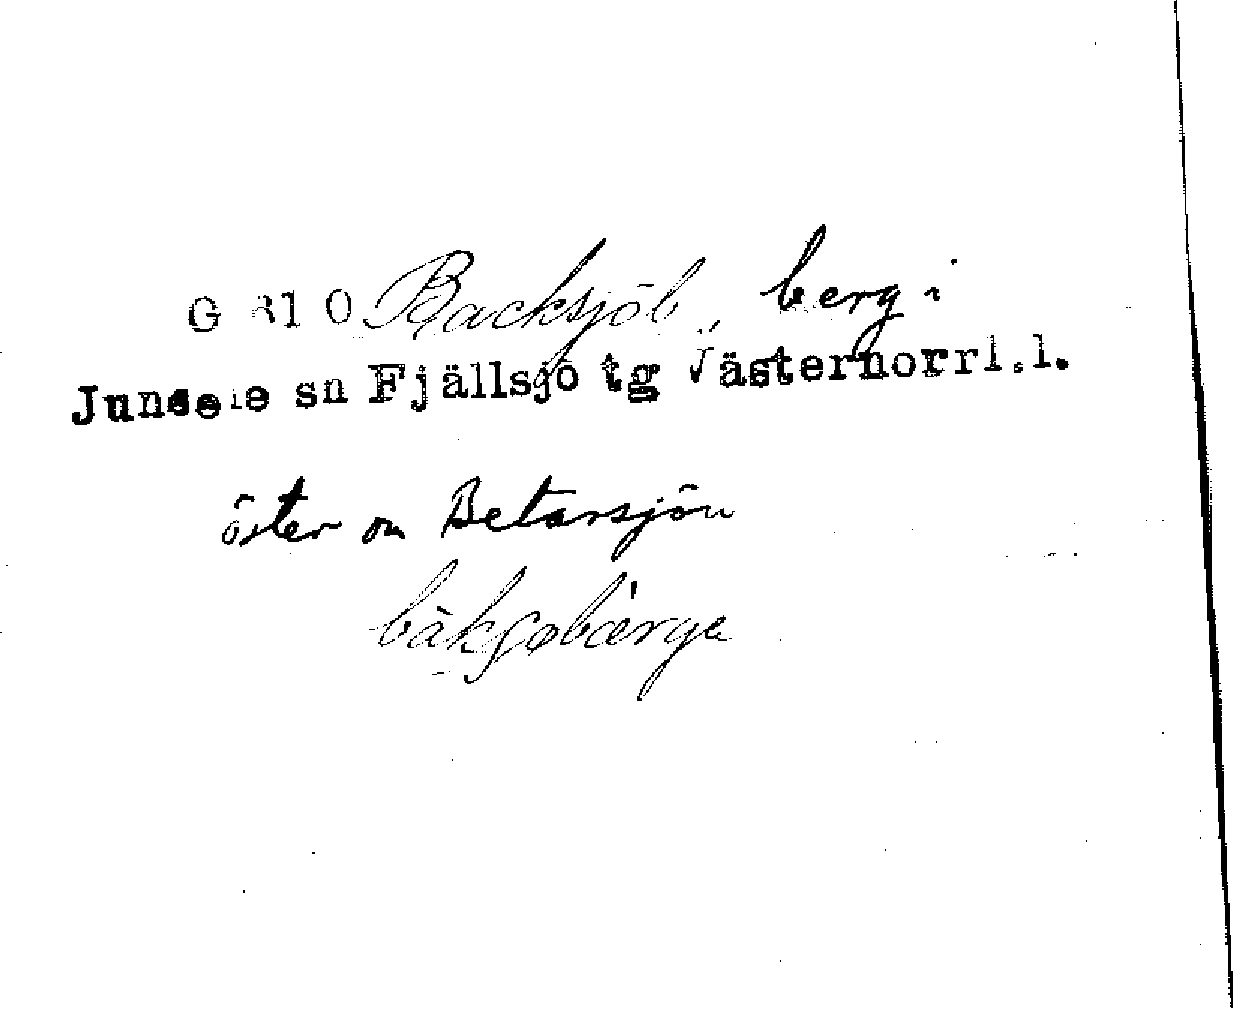 G 31 O Backsjöb., berg i
Junsele sn Fjällsjö tg Västernorrl.l.
öster om Betarsjön
bàkʃøbærge